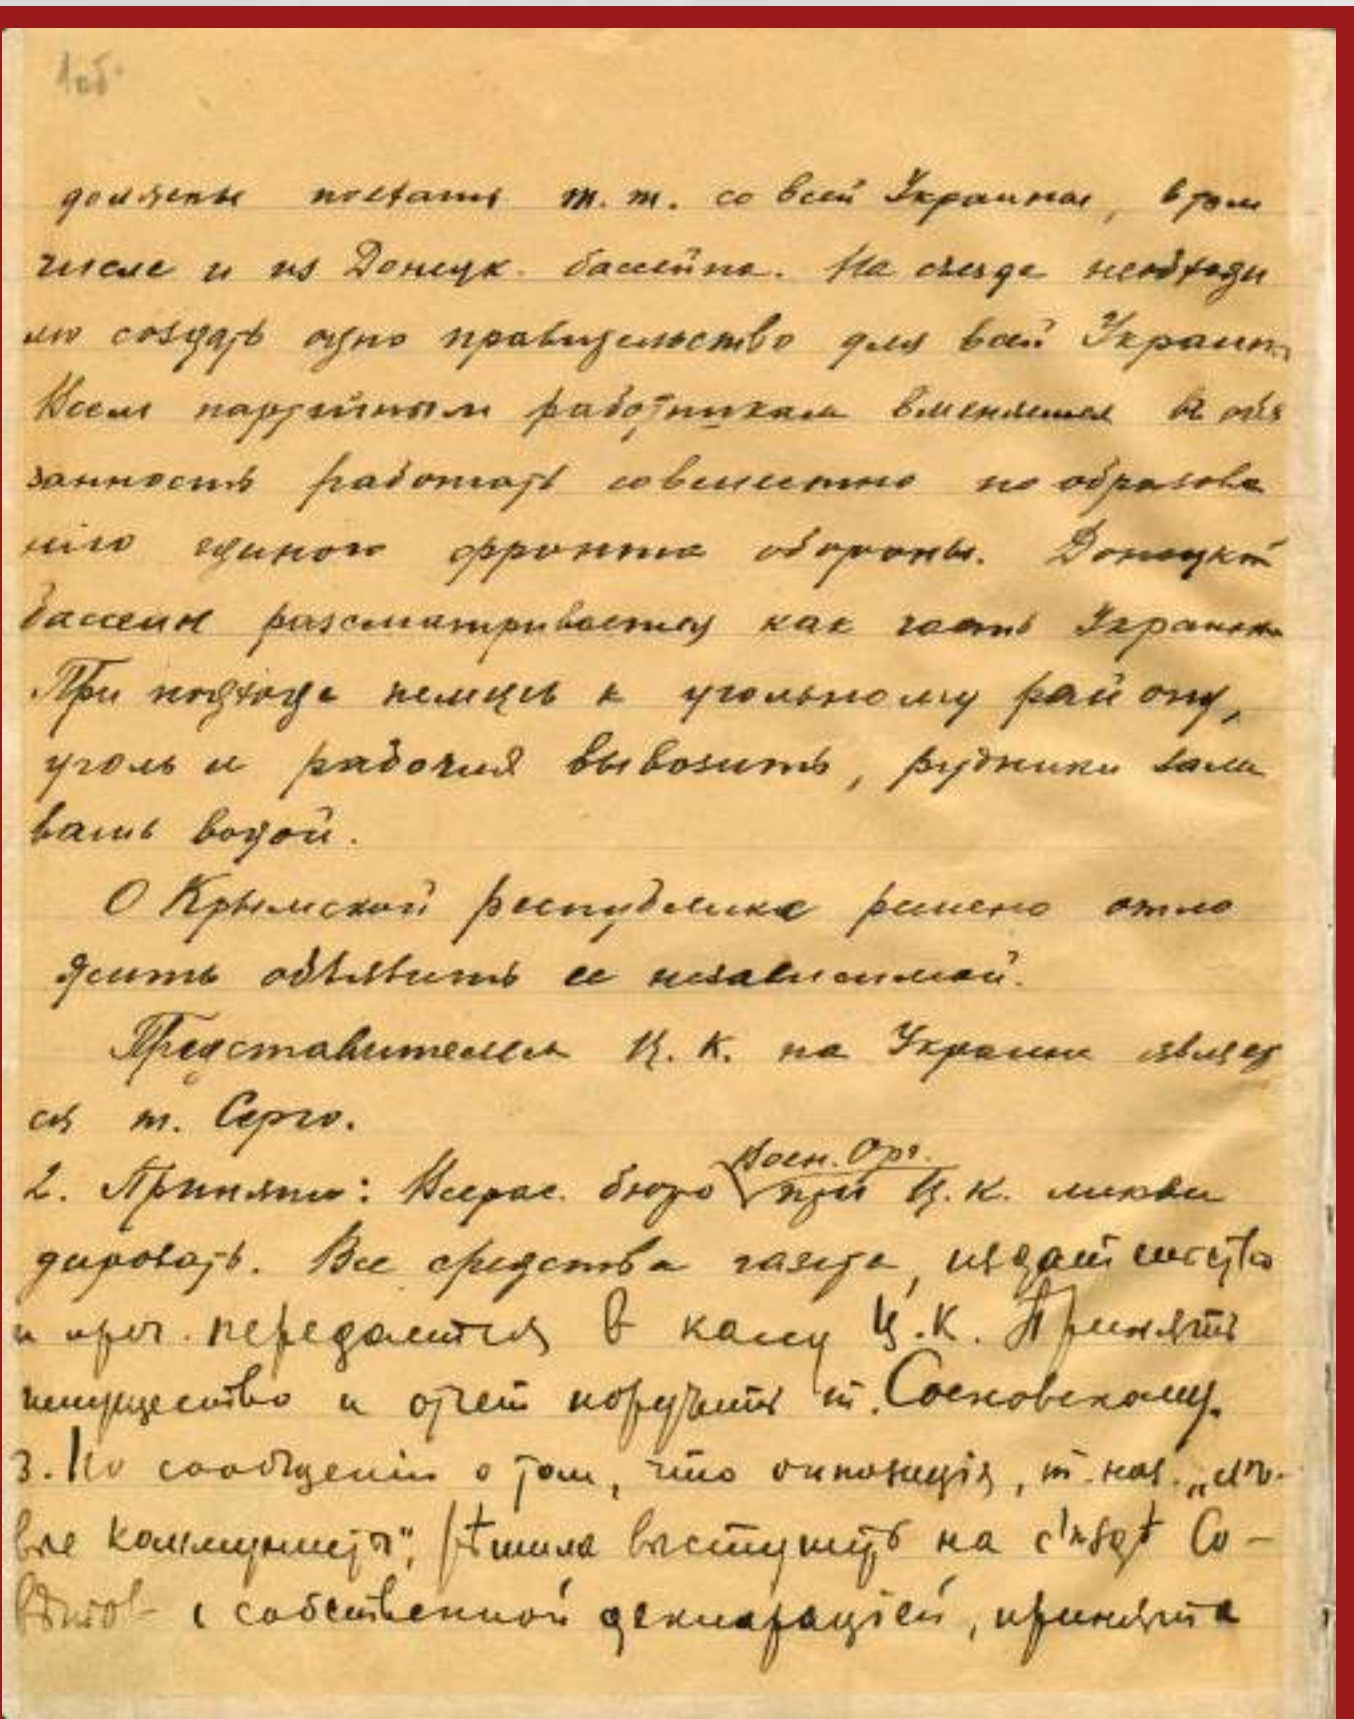 1об.
должны поехать т. т. со всей Украины, в том
числе и из Донецк. бассейна. На съезде необходи
мо создать одно правительство для всей Украины
Всем партийным работникам вменяется в обя
занность работать совместно по образова
нию единого фронта обороны. Донецкий
бассейн разсматривается как часть Украины
При подходе немцев к угольному району,
уголь и рабочих вывозить, рудники зали
вать водой.
О Крымской республике решено отло
жить объявить ее независимой.
Представителем Ц. К. на Украине являет
ся т. Серго.
Воен. Орг.
2. Принято: Всерос. бюро при Ц. К. ликви
дировать. Все средства газета, издательство
и проч. передаются в кассу Ц. К. Принять
имущество и отчет поручить т. Сосновскому.
3. По сообщении о том, что оппозиція, т. наз. „лѣ-
вые коммунисты", рѣшила выступить на съѣздѣ Со-
вѣтов с собственной декларацией, принята